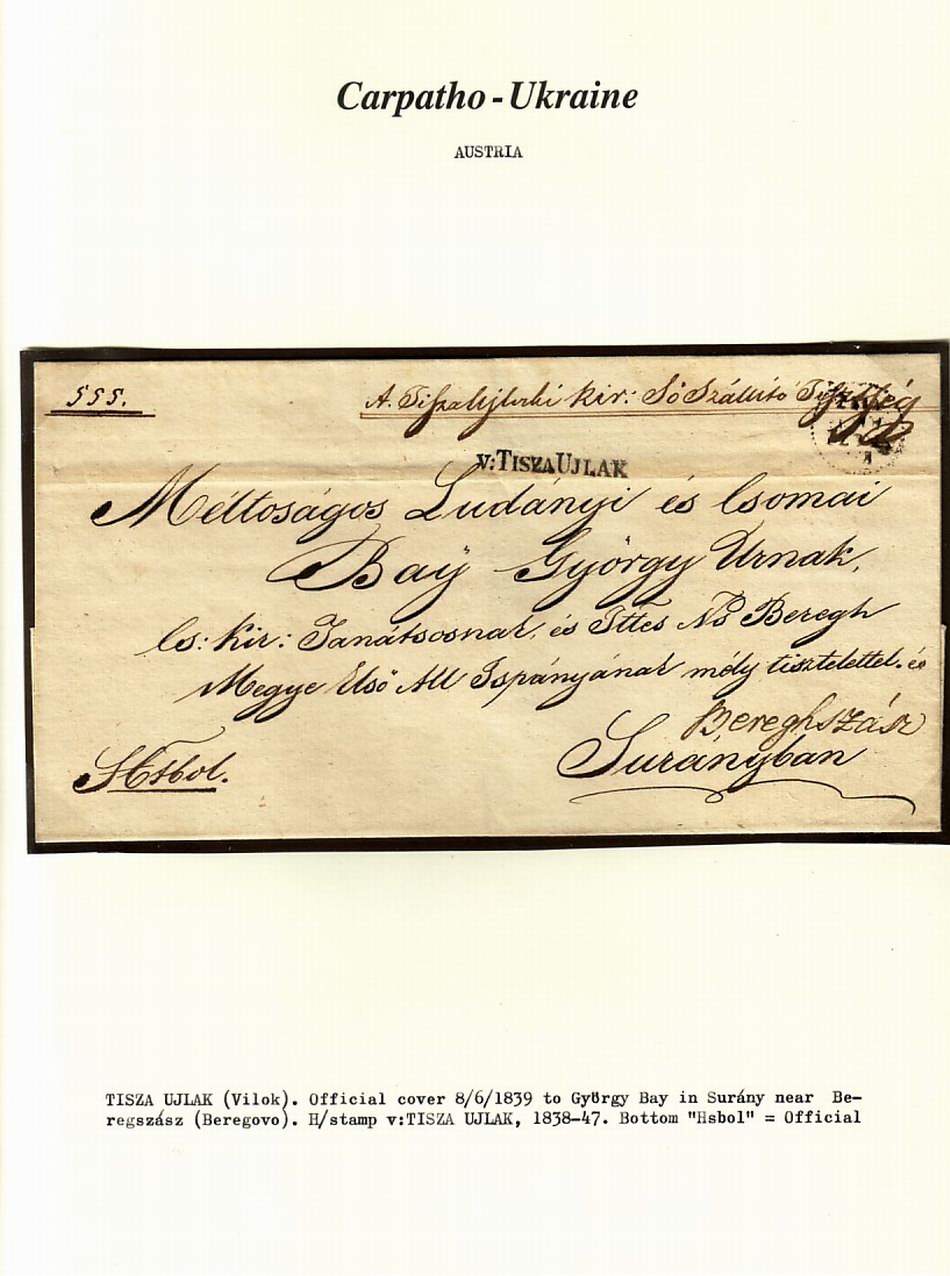 Carpatho-Ukraine
AUSTRIA
555.
A. Tiszaújlaki kir: Só Szállitó Tisztség
v:TISZA UJLAK
Méltoságos Ludányi és Csomai
Baÿ György Urnak,
Cs: Kir: Tanátsosnak, és Tttes Ns Beregh
Megye Első All Ispányának mély tisztelettel. és
Bereghszász
Surányban
Hsbol.
TISZA UJLAK (Vilok). Official cover 8/6/1839 to György Bay in Surány near Be-
regszász (Beregovo). H/stamp v:TISZA UJLAK, 1838-47. Bottom "Hsbol" = Official